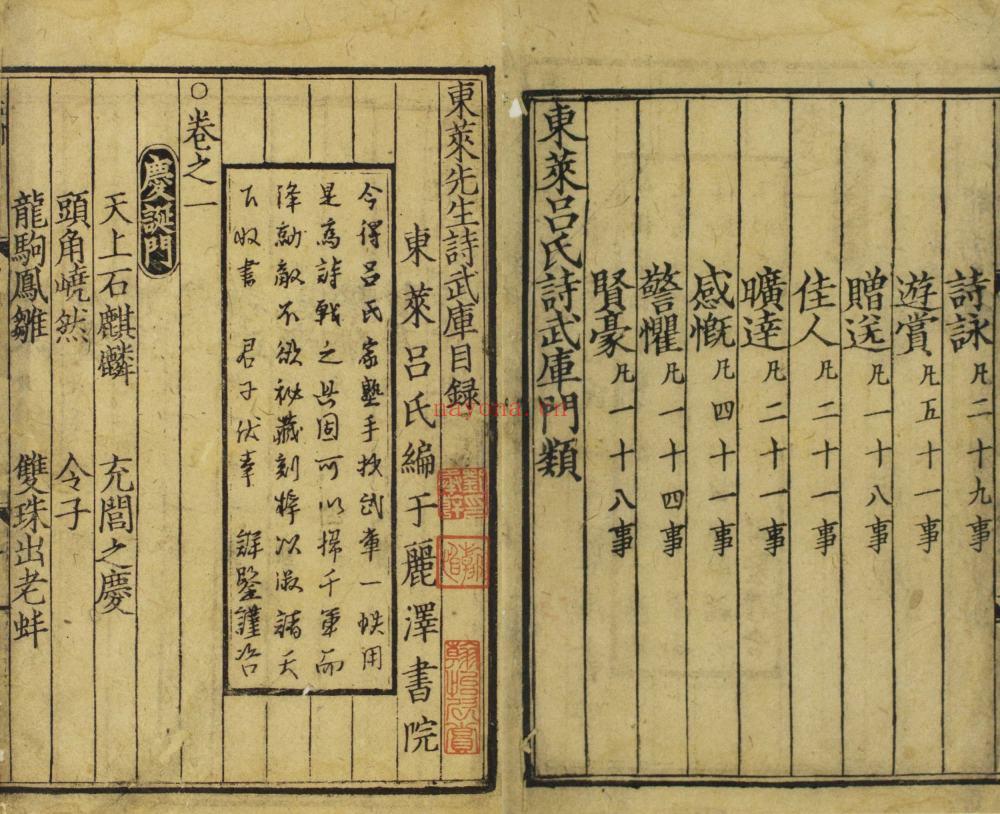 詩詠 凡二十九事
遊賞 凡五十一事
贈送 凡一十八事
佳人 凡二十一事
曠逹 凡二十一事
感慨 凡四十一事
警懼 凡一十四事
賢豪 凡一十八事
東萊吕氏詩武庫門類
東萊先生詩武庫目録
東萊吕氏編于麗澤書院
今得吕氏家塾手抄武庫一帙用
是為詩戰之具固可以掃千軍而
降勍敵不欲祕藏刻梓以淑諸天
下收書 君子伏幸 詳鑒謹咨
○卷之一
慶誕門
天上石麒麟 充閭之慶
頭角嶢然 令子
龍駒鳳雛 雙珠出老蚌
nayona.cn